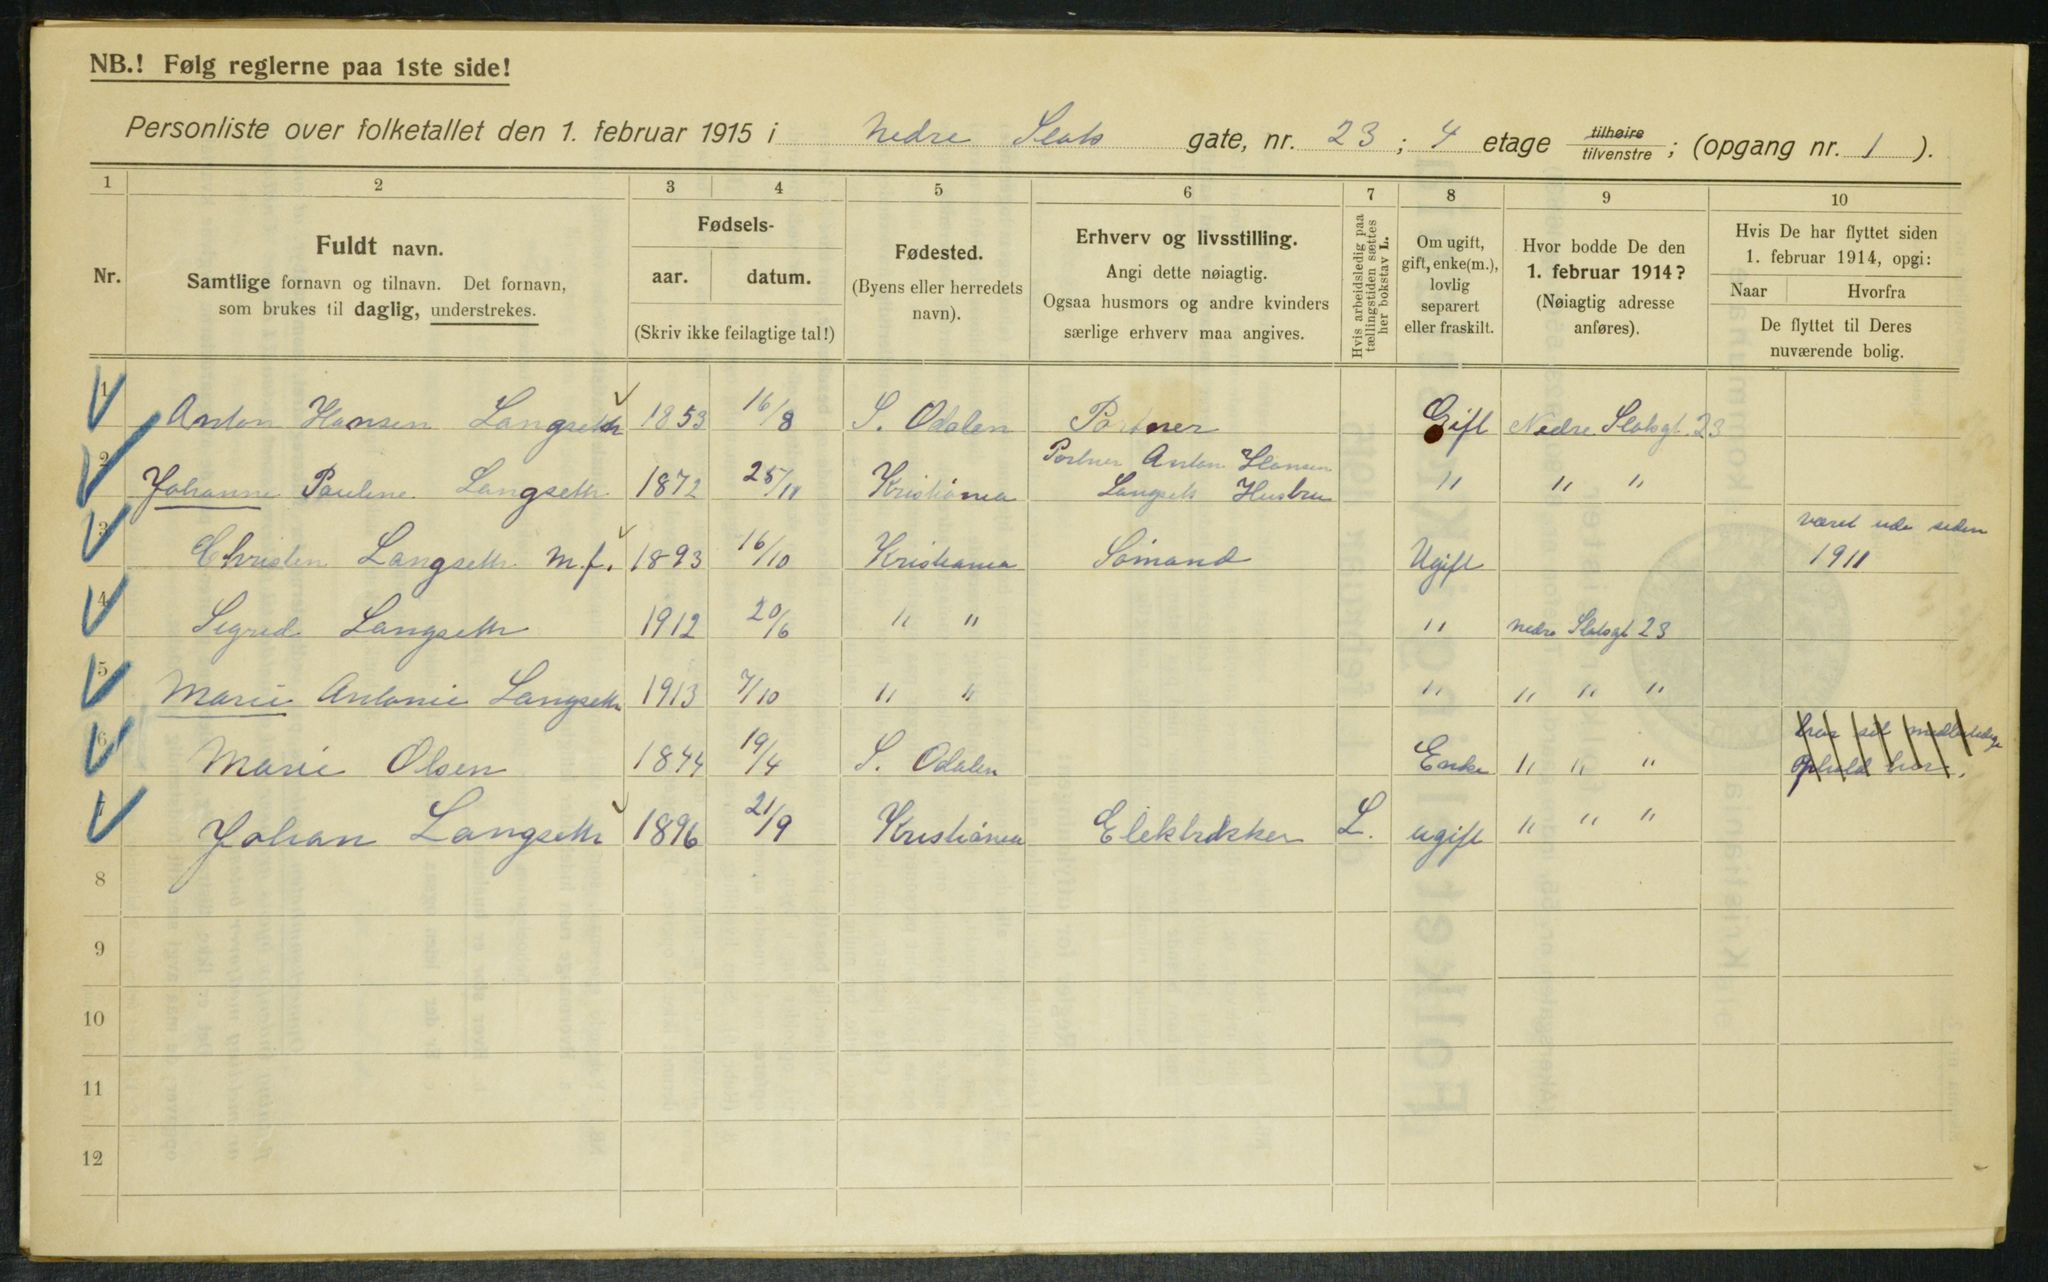 NB.! Følg reglerne paa 1ste side!
Personliste over folketallet den 1. februar 1915 i Nedre Slots gate, nr. 23 ; 4 etage tilhøire tilvenstre ; (opgang nr. 1 ).
1 2 3 4 5 6 7 8 9 10
Nr.
Fuldt navn.
Samtlige fornavn og tilnavn. Det fornavn,
som brukes til daglig, understrekes.
Fødsels-
aar. datum.
(Skriv ikke feilagtige tal!)
Fødested.
(Byens eller herredets
navn).
Erhverv og livsstilling.
Angi dette nøiagtig.
Ogsaa husmors og andre kvinders
særlige erhverv maa angives.
Hvis arbeidsledig paa
tællingstiden sættes
her bokstav L.
Om ugift,
gift, enke(m.),
lovlig
separert
eller fraskilt.
Hvor bodde De den
1. februar 1914?
(Nøiagtig adresse
anføres).
Hvis De har flyttet siden
1. februar 1914, opgi:
Naar Hvorfra
De flyttet til Deres
nuværende bolig.
1 Anton Hansen Langseth 1853 16/8 S. Odalen Portner Gift Nedre Slotsgt. 23
2 Johanne Pauline Langseth 1872 25/11 Kristiania Portner Anton Hansen
Langseth Hustru " " "
3 Christen Langseth m.f. 1893 16/10 Kristiania Sömand Ugift været ude siden
1911
4 Sigrid Langseth 1912 20/6 " " " nedre Slotsgt 23
5 Marie Antonie Langseth 1913 7/10 " " " " " "
6 Marie Olsen 1844 19/4 S. Odalen Enke " " " har sit midlertidige
Ophold her.
7 Johan Langseth 1896 21/9 Kristiania Elektrikker L. ugift " " "
8
9
10
11
12